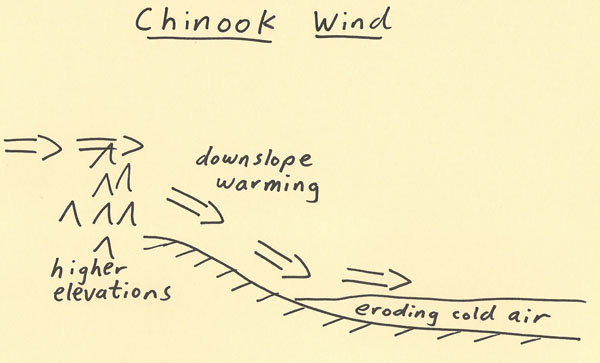 Chinook Wind
downslope
warming
higher
elevations
eroding cold air